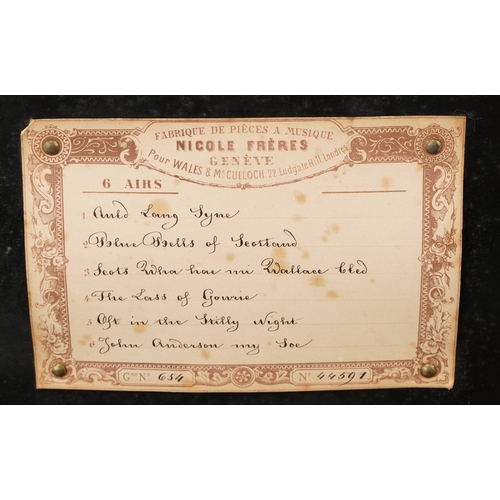 FABRIQUE DE PIÈCES A MUSIQUE
NICOLE FRÈRES
GENÈVE
Pour WALES & Mc CULLOCH, 22 Ludgate Hill, Londres
6 AIRS
1 Auld Lang Syne
2 Blue Bells of Scotland
3 Scots Wha hae wi Wallace bled
4 The Lass of Gowrie
5 Oft in the Stilly Night
6 John Anderson my Joe
Gme No 654
No 44591